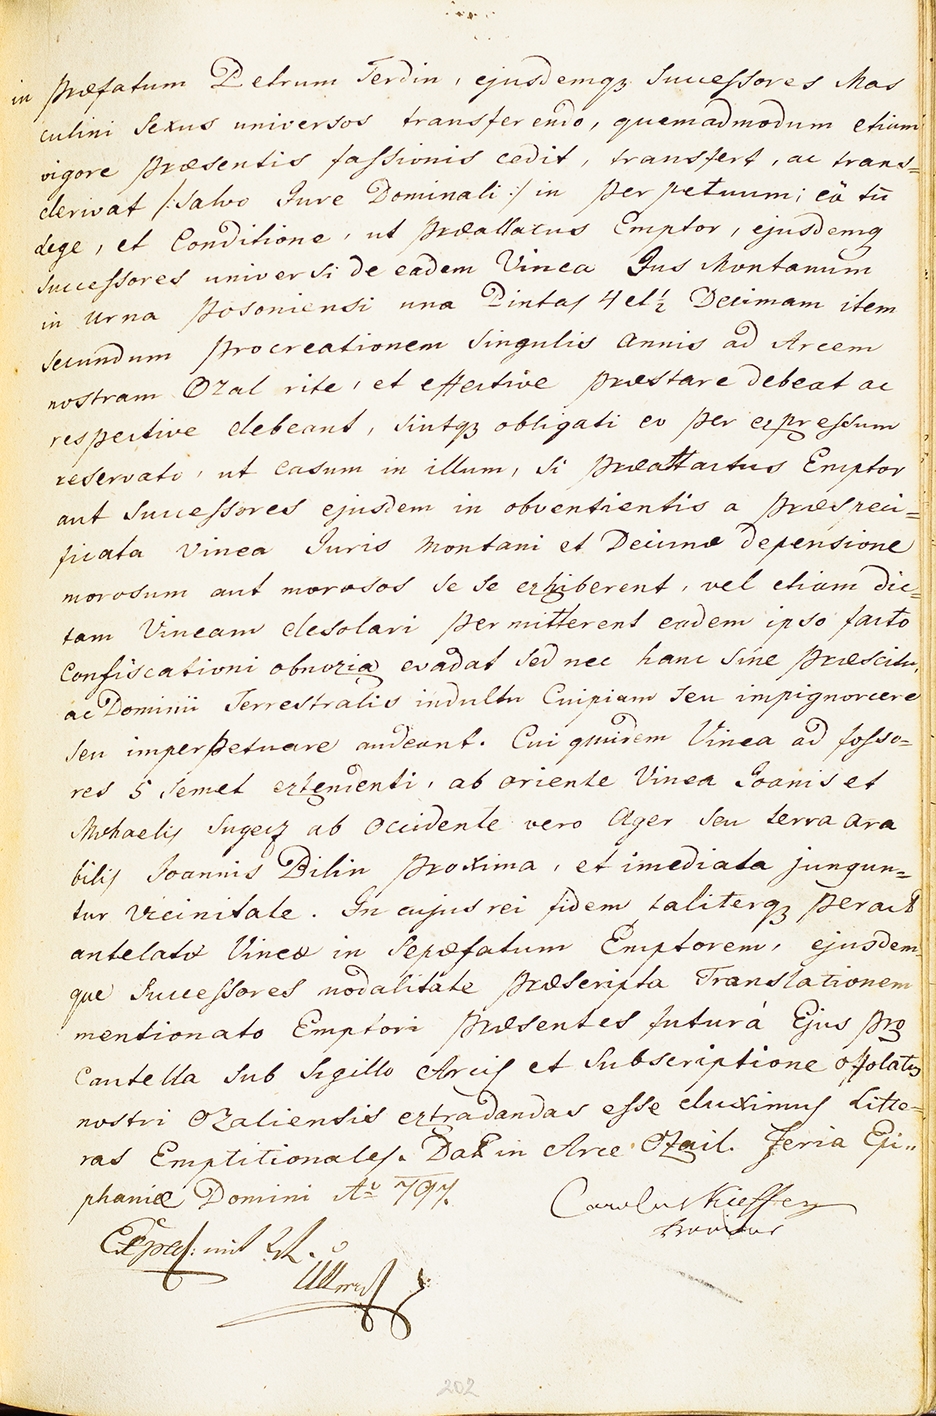 in præfatum Petrum Ferdin, ejusdemqʒ Successores Mas
culini Sexus universos transferendo, quemadmodum etiam
vigore præsentis fassionis cedit, transfert, ac trans=
derivat /: Salvo Jure Dominali :/ in perpetuum; eä tn̄
lege, et Conditione, ut præallatus Emptor, ejusdemq
Successores universi de eadem Vinea Jus Montanum
in Urna Posoniensi una Pintas 4 et ½ Decimam item
secundum procreationem Singulis Annis ad Arcem
nostram Ozal rite, et effective præstare debeat ac
respective debeant, sintqʒ obligati eo per expressum
reservato, ut casum in illum, si præattactus Emptor
aut Successores ejusdem in obventientis a præspeci=
ficata Vinea Juris Montani et Decimæ depensione
morosum aut morosos se se exhiberent, vel etiam dic=
tam Vineam desolari permitterent eadem ipso facto
Confiscationi obnoxia evadat sed nec hanc sine præscitu,
ac Dominii Terrestralis indultu Cuipiam seu impignorare
seu imperpetuare audeant. Cui quidem Vinea ad fosso=
res 5 Semet extendenti, ab oriente Vinea Joanis et
Michaelis ab Occidente vero Ager seu terra ara
bilis Joannis Bilin proxima, et imediata jungun=
tur Vicinitate. In cujus rei fidem taliterqʒ peract
antelatæ Vineæ in Sepæfatum Emptorem, ejusdem
que Successores modalitate præscripta Translationem
mentionato Emptori præsentes futurá Ejus pro
Cautella sub Sigillo Arcis et Subscriptione offolatus
nostri Ozaliensis extradandas esse duximus Litte=
ras Emptitionales. Dat in Arce Ozail. Feria Epi=
phaniæ Domini Aō 797.
Carolus Kieffer
Provisor